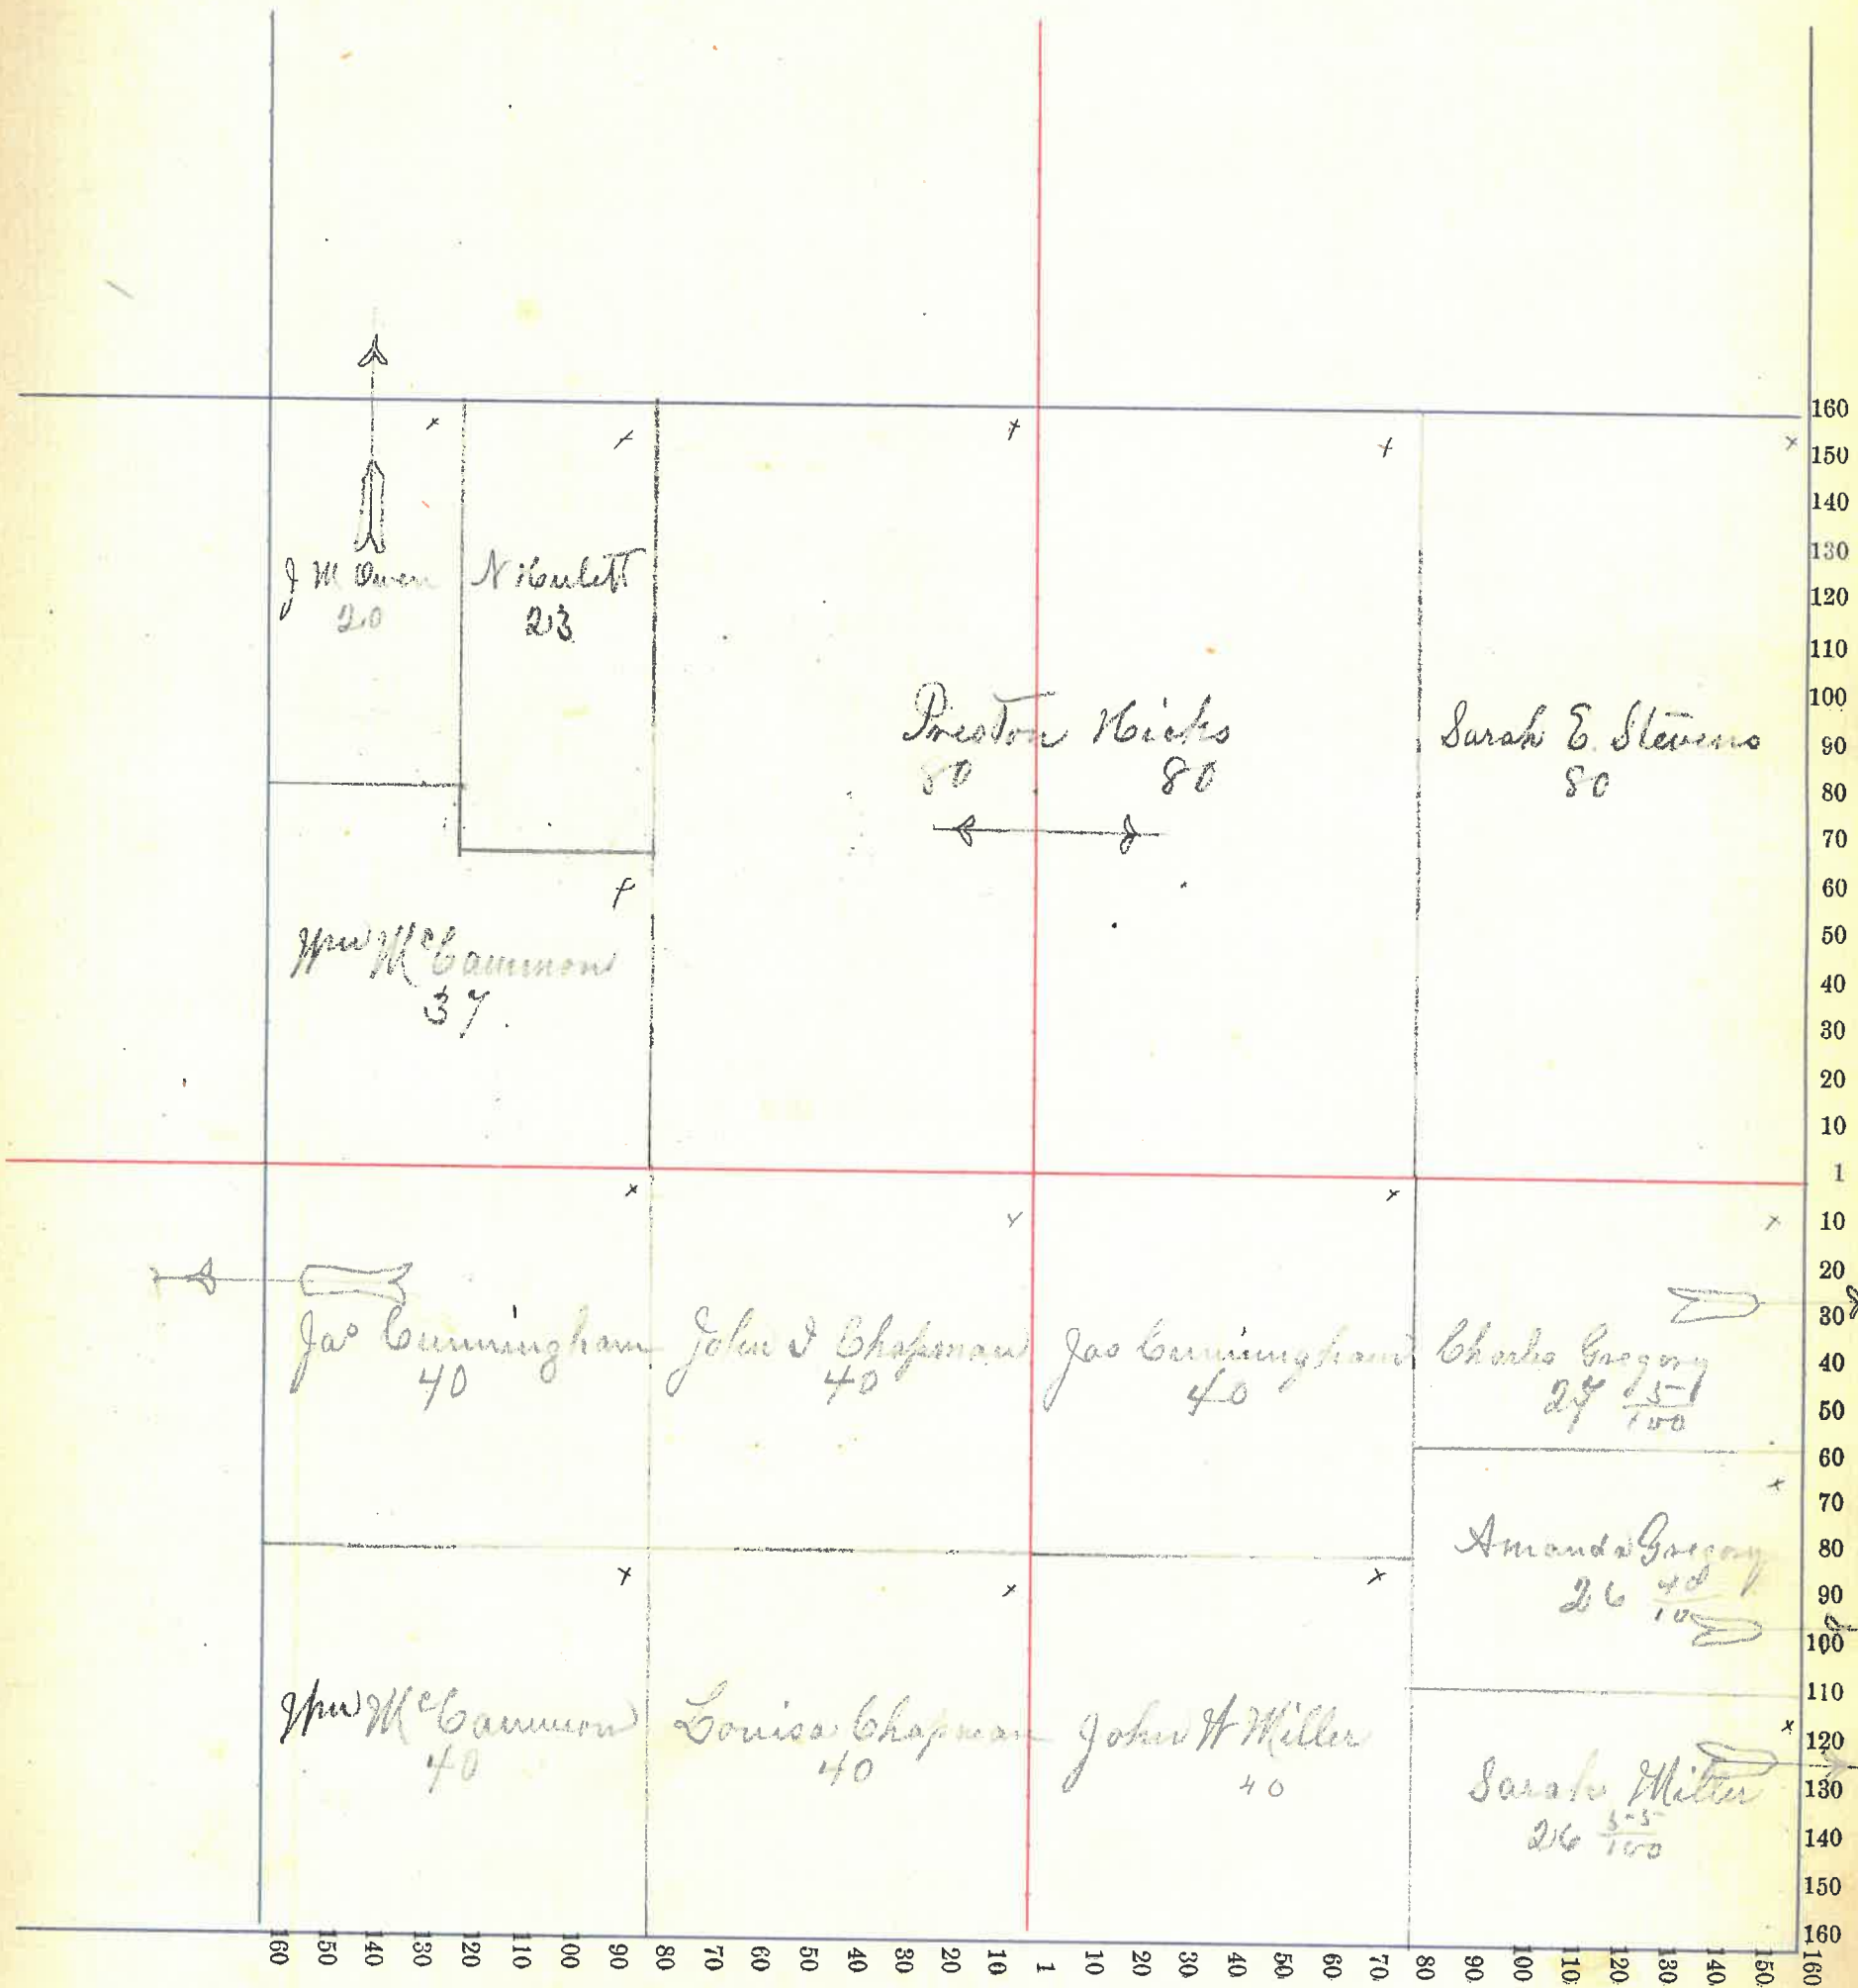 J M Owen
20
N Hulett
23
Preston Hicks
80 80
Sarah E. Stevens
80
Wm McCammon
37.
Jas Cunningham
40
John I Chapman
40
Jas Cunningham
40
Charles Gregory
27 5/100
Amanda Gregory
26
Wm McCammon
40
Louisa Chapman
40
John W Miller
40
Sarah Miller
26 55/100
160
150
140
130
120
110
100
90
80
70
60
50
40
30
20
10
1
10
20
30
40
50
60
70
80
90
100
110
120
130
140
150
160
160 150 140 130 120 110 100 90 80 70 60 50 40 30 20 10 1 10 20 30 40 50 60 70 80 90 100 110 120 130 140 150 160